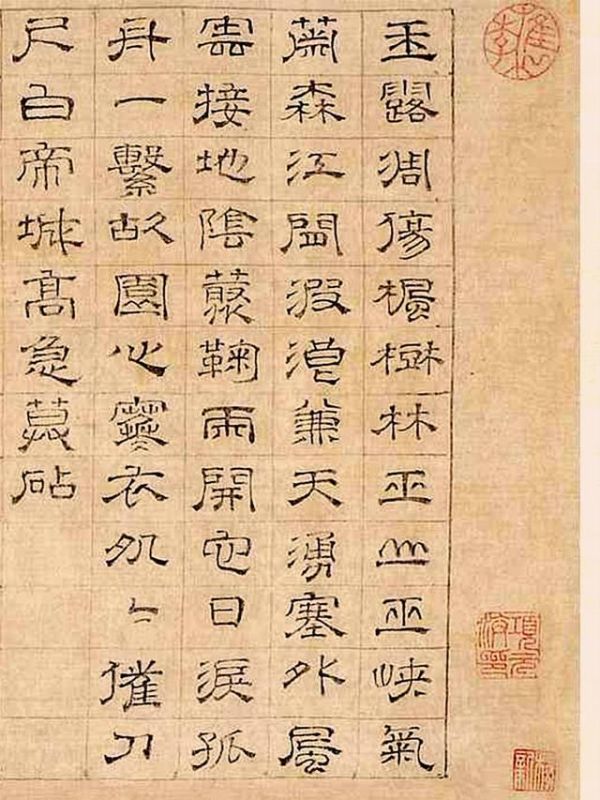 玉露凋傷楓樹林巫山巫峽氣
蕭森江間波浪兼天湧塞外風
雲接地陰藂鞠兩開它日淚孤
舟一繫故園心寒衣処〻催刀
尺白帝城高急暮砧